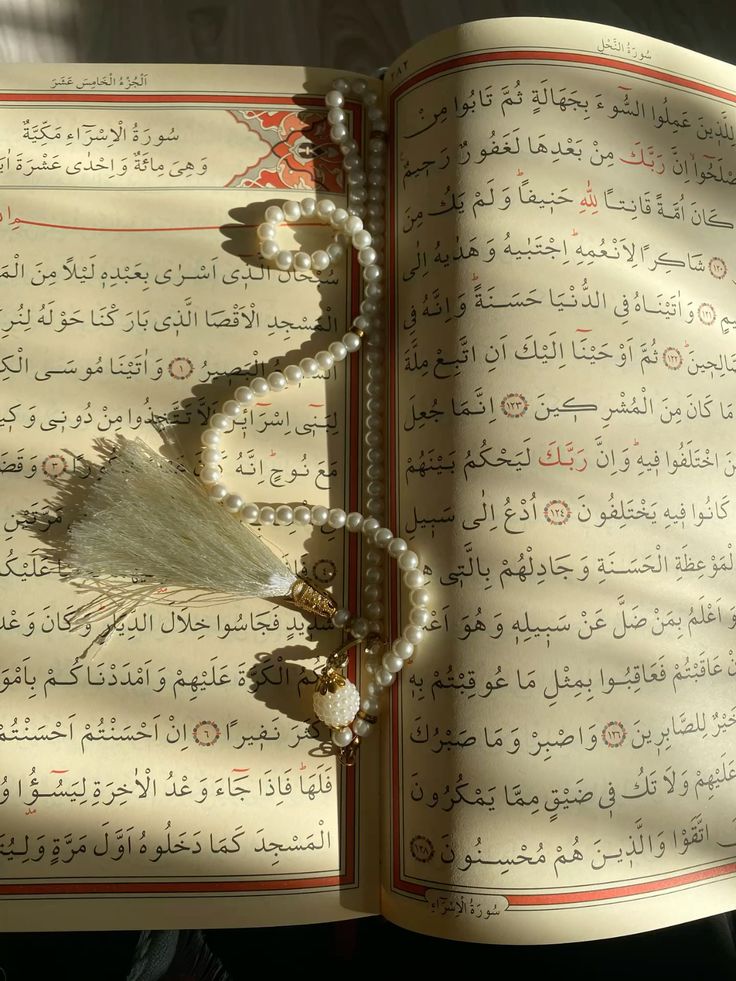 سُورَةُ النَّحْلِ ٢٨٢
لِلَّذِينَ عَمِلُوا السُّوءَ بِجَهَالَةٍ ثُمَّ تَابُوا مِنْ
إِنَّ رَبَّكَ مِنْ بَعْدِهَا لَغَفُورٌ رَحِيمٌ
كَانَ اُمَّةً قَانِتًا لِلّٰهِ حَنِيفًا وَلَمْ يَكُ مِنَ
١٢٠ شَاكِرًا لِاَنْعُمِهِ اِجْتَبٰيهُ وَهَدٰيهُ اِلٰى
١٢١ وَاٰتَيْنَاهُ فِي الدُّنْيَا حَسَنَةً وَاِنَّهُ فِي
١٢٢ ثُمَّ اَوْحَيْنَا اِلَيْكَ اَنِ اتَّبِعْ مِلَّةَ
مَا كَانَ مِنَ الْمُشْرِكِينَ ١٢٣ اِنَّمَا جُعِلَ
اخْتَلَفُوا فِيهِ وَاِنَّ رَبَّكَ لَيَحْكُمُ بَيْنَهُمْ
كَانُوا فِيهِ يَخْتَلِفُونَ ١٢٤ اُدْعُ اِلٰى سَبِيلِ
الْمَوْعِظَةِ الْحَسَنَةِ وَجَادِلْهُمْ بِالَّتِي
اَعْلَمُ بِمَنْ ضَلَّ عَنْ سَبِيلِهِ وَهُوَ
عَاقَبْتُمْ فَعَاقِبُوا بِمِثْلِ مَا عُوقِبْتُمْ بِهِ
خَيْرٌ لِلصَّابِرِينَ ١٢٦ وَاصْبِرْ وَمَا صَبْرُكَ
عَلَيْهِمْ وَلَا تَكُ فِي ضَيْقٍ مِمَّا يَمْكُرُونَ
اتَّقَوْا وَالَّذِينَ هُمْ مُحْسِنُونَ ١٢٨
سُورَةُ الْاِسْرَاءِ
اَلْجُزْءُ الْخَامِسَ عَشَرَ
سُورَةُ الْاِسْرَاءِ مَكِّيَّةٌ
وَهِيَ مِائَةٌ وَاِحْدٰى عَشْرَةَ
سُبْحَانَ الَّذِي اَسْرٰى بِعَبْدِهِ لَيْلًا مِنَ
الْمَسْجِدِ الْاَقْصَا الَّذِي بَارَكْنَا حَوْلَهُ
الْبَصِيرُ ١ وَاٰتَيْنَا مُوسَى
لِبَنِي اِسْرَائِلَ اَلَّا تَتَّخِذُوا مِنْ دُونِي
مَعَ نُوحٍ اِنَّهُ ٣
مَرَّتَيْنِ
شَدِيدٍ فَجَاسُوا خِلَالَ الدِّيَارِ وَكَانَ
الْكَرَّةَ عَلَيْهِمْ وَاَمْدَدْنَاكُمْ
نَفِيرًا ٦ اِنْ اَحْسَنْتُمْ اَحْسَنْتُمْ
فَلَهَا فَاِذَا جَاءَ وَعْدُ الْاٰخِرَةِ لِيَسُؤُا
الْمَسْجِدَ كَمَا دَخَلُوهُ اَوَّلَ مَرَّةٍ